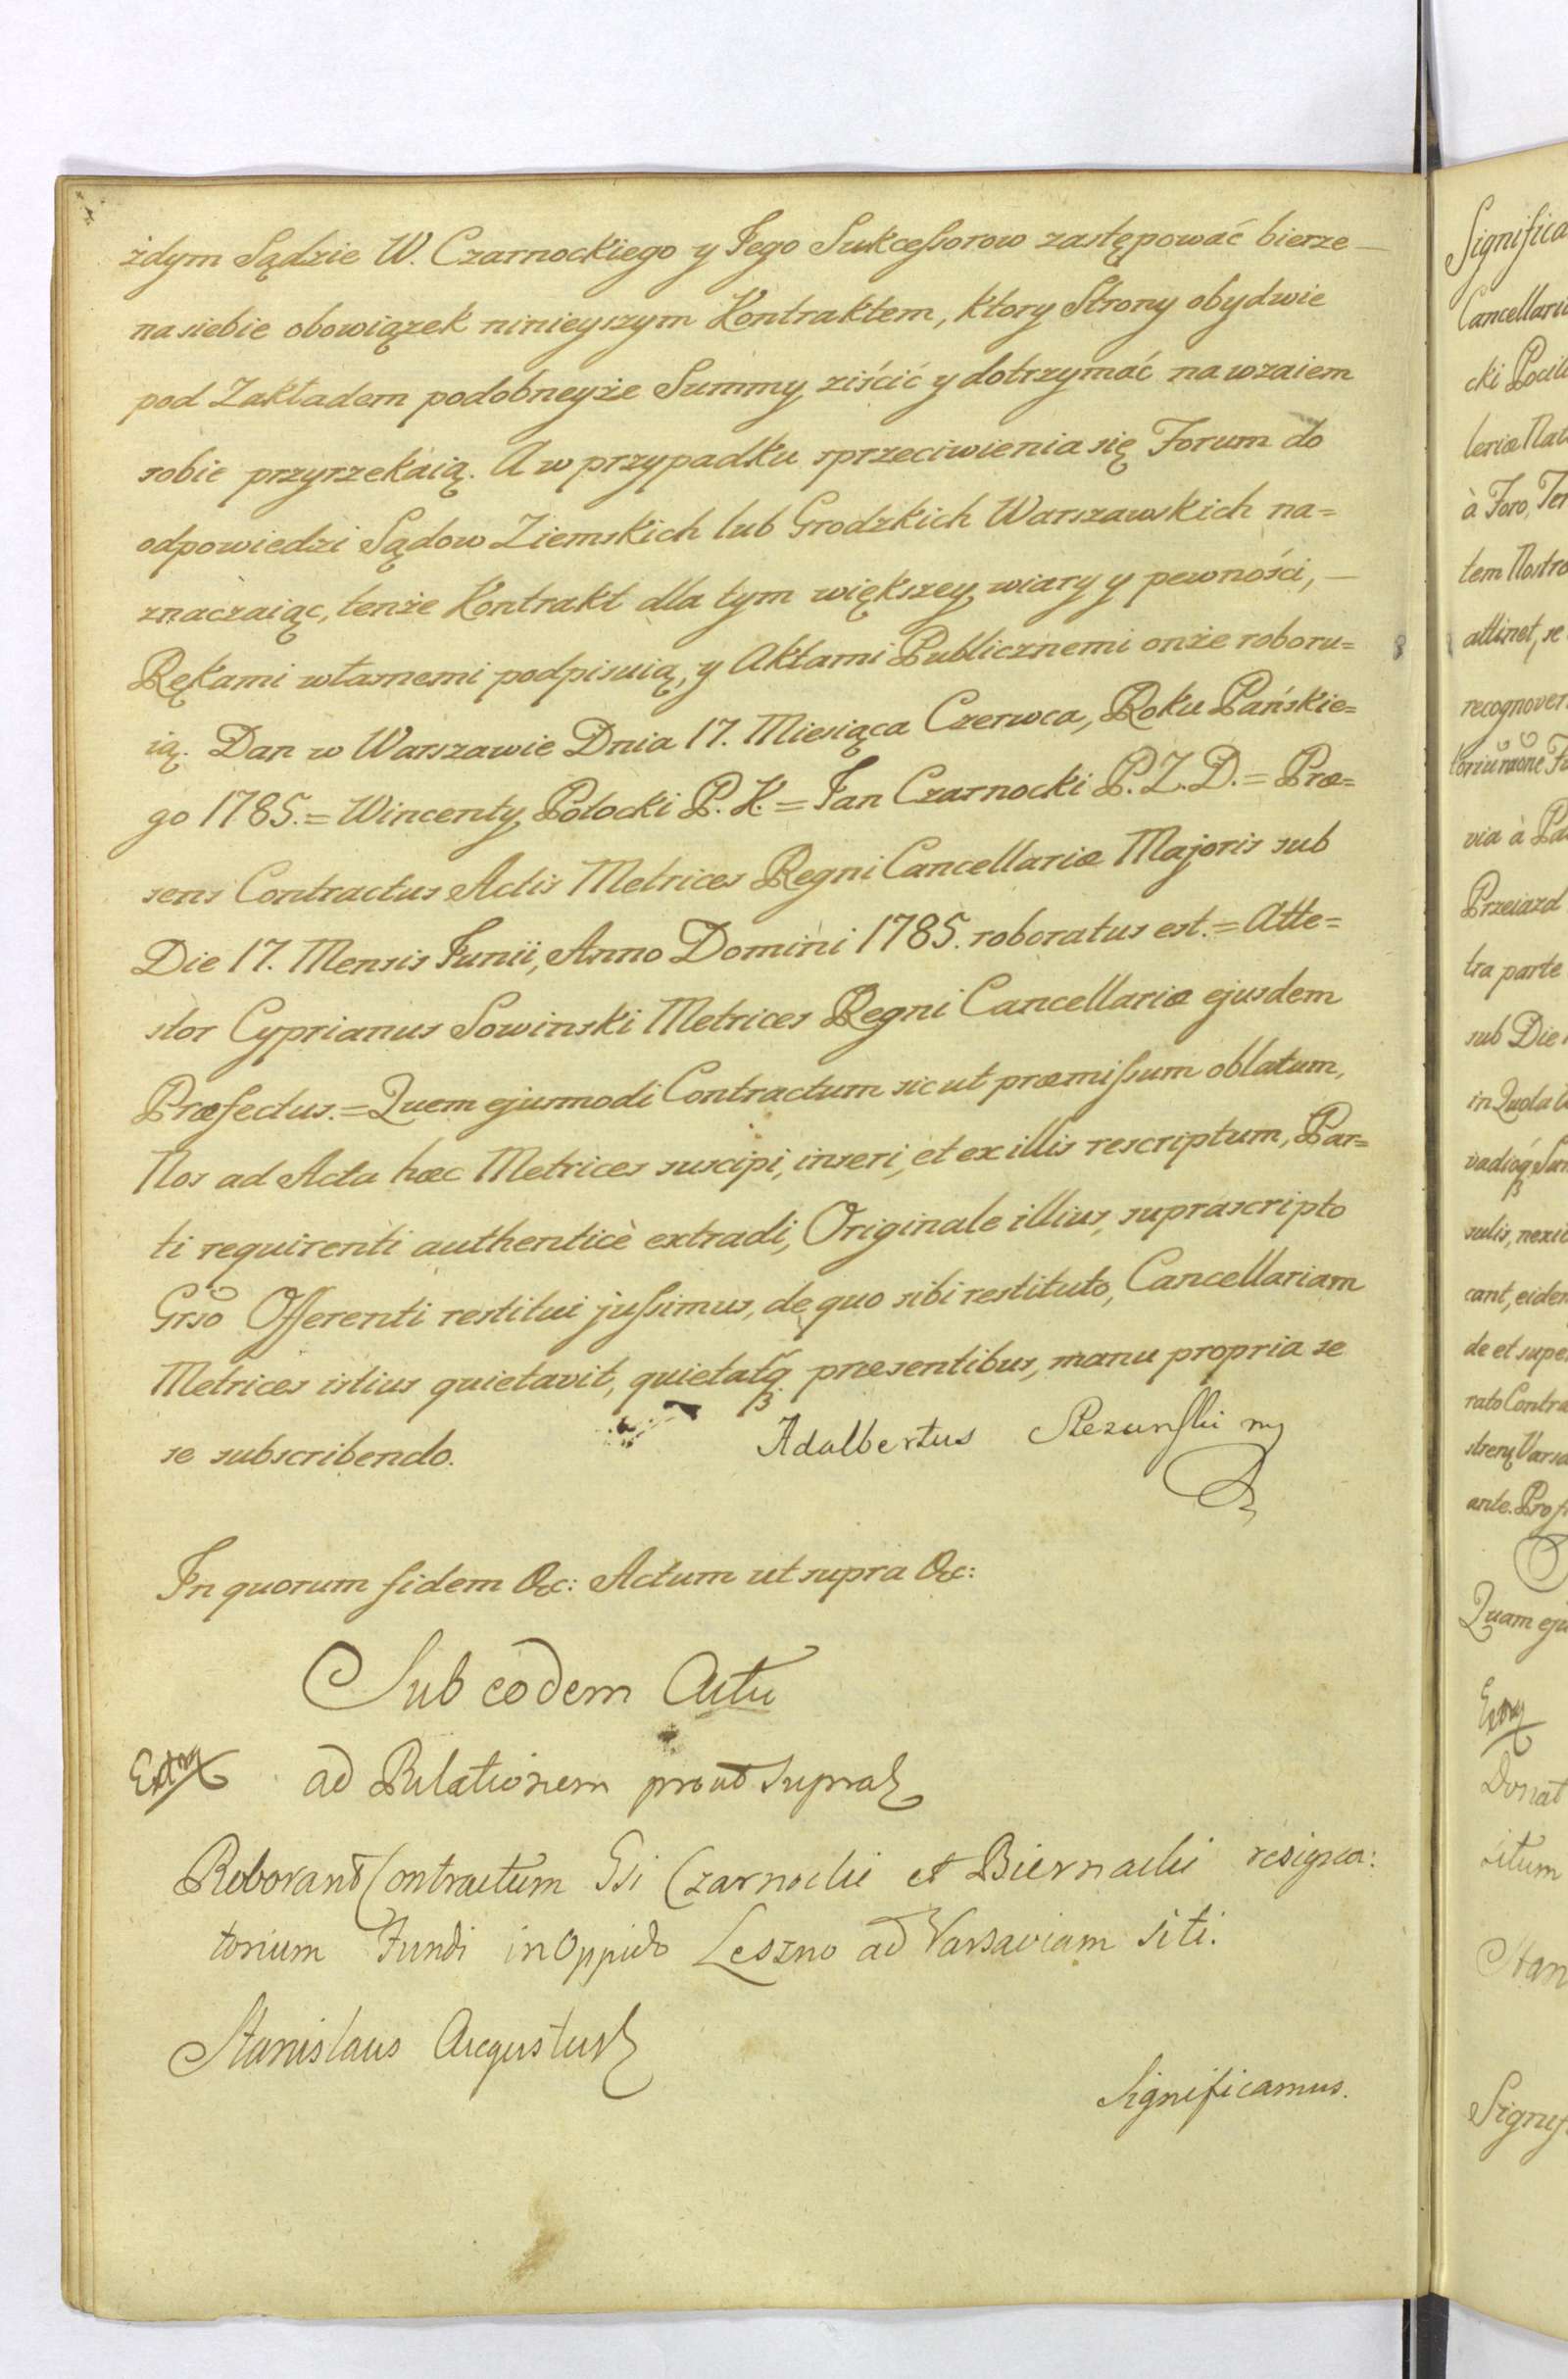 żdym Sądzie W. Czarnockiego y Jego Sukcessorow zastępować bierze —
na siebie obowiązek ninieyszym Kontraktem, ktory Strony obydwie
pod Zakładem podobneyże Summy ziścić y dotrzymać na wzaiem
sobie przyrzekaią. A w przypadku sprzeciwienia się Forum do
odpowiedzi Sądow Ziemskich lub Grodzkich Warszawskich na=
znaczaiąc, tenże Kontrakt dla tym większey wiary y pewności, —
Rękami własnemi podpisuią, y Aktami Publicznemi onże roboru=
ią. Dan w Warszawie Dnia 17. Miesiąca Czerwca, Roku Pańskie=
go 1785. = Wincenty Potocki P. K. = Jan Czarnocki P. Z. D. = Præ=
sens Contractus Actis Metrices Regni Cancellariæ Majoris sub
Die 17. Mensis Junii, Anno Domini 1785. roboratus est. = Atte=
stor Cyprianus Sowinski Metrices Regni Cancellariæ ejusdem
Præfectus. = Quem ejusmodi Contractum sicut præmissum oblatum,
Nos ad Acta hæc Metrices suscipi, inseri, et ex illis rescriptum, Par=
ti requirenti authenticè extradi, Originale illius, suprascripto
Grso Offerenti restitui jussimus, de quo sibi restituto, Cancellariam
Metrices istius quietavit, quietatq præsentibus, manu propria se
se subscribendo.
Adalbertus mp
In quorum fidem &c: Actum ut supra &c:
Sub eodem Actu
ad Relationem prout supra
Roborant Contractum Gsi Czarnocki et Biernacki resigna:
torium Fundi in Oppido Leszno ad Varsaviam siti.
Stanislaus Augustus
Significamus.
Cancellari
cki
à Foro, Ter
tem Nostro
attinet, se
recognover
via à
Przeiazd
tra parte
sub Die
cant, eidem
de et super
rato Contra
ante.
Quam eju
Donat
situm
Stan